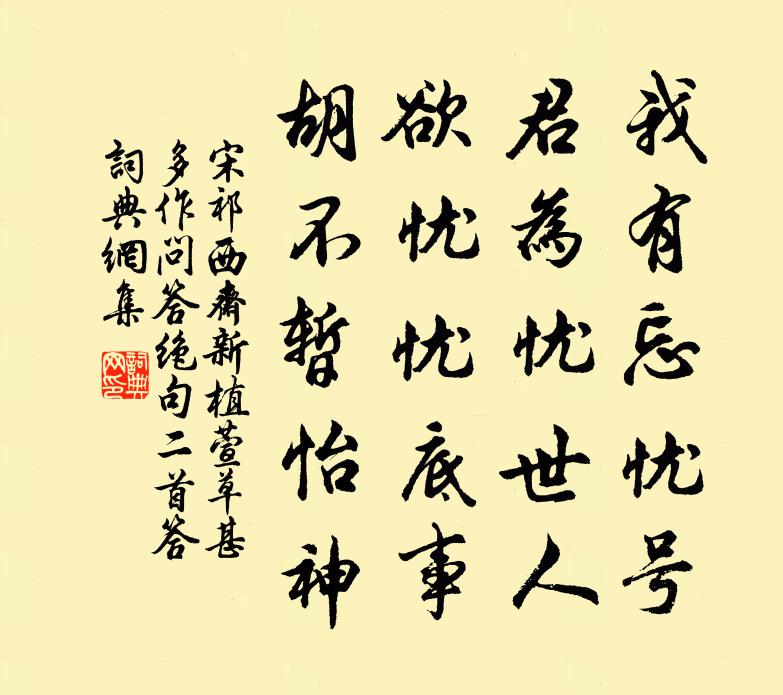 我有忘忧号
君為忧世人
欲忧忧底事
胡不暂怡神
宋祁西齋新植萱草甚
多作问答绝句二首答
詞典網集
詞典
网印